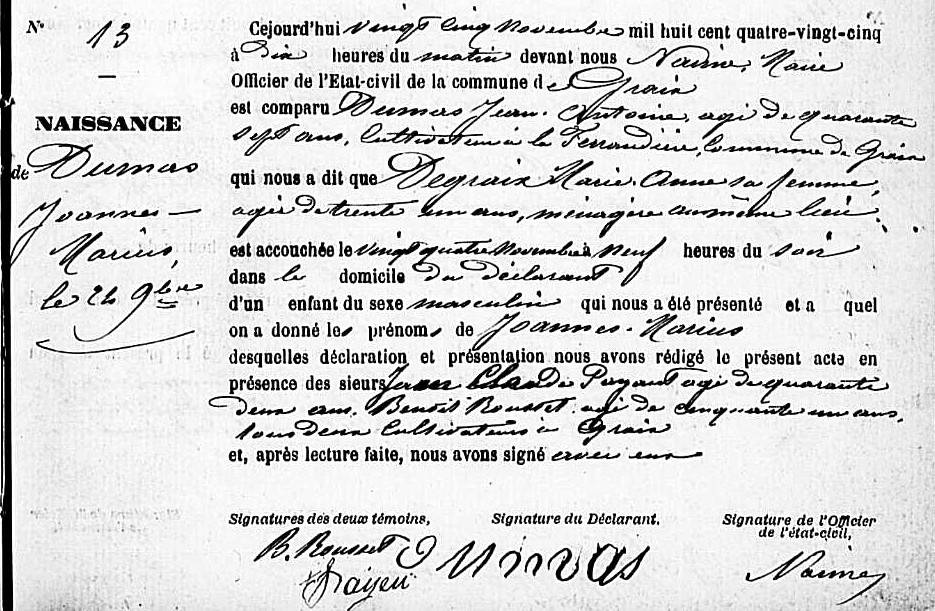 N° 13
NAISSANCE
de Dumas
Joannes-
Marius,
le 24 9bre
Cejourd'hui vingt cinq novembre mil huit cent quatre-vingt-cinq
à dix heures du matin devant nous Naime, Maire
Officier de l'Etat-civil de la commune de Graix
est comparu Dumas Jean-Antoine, agé de quarante
sept ans, Cultivateur à la Ferraudière, Commune de Graix
qui nous a dit que Degraix Marie-Anne sa femme,
agée de trente un ans, ménagère au même lieu,
est accouchée le vingt quatre novembre à neuf heures du soir
dans le domicile du déclarant
d'un enfant du sexe masculin qui nous a été présenté et a quel
on a donné les prénoms de Joannes-Marius
desquelles déclaration et présentation nous avons rédigé le présent acte en
présence des sieurs Jean Claude Payant agé de quarante
deux ans, Benoit Rousset agé de cinquante un ans,
tous deux Cultivateurs à Graix
et, après lecture faite, nous avons signé avec eux
Signatures des deux témoins,
B. Rousset
Signature du Déclarant,
Dumas
Signature de l'Officier
de l'état-civil,
Naime